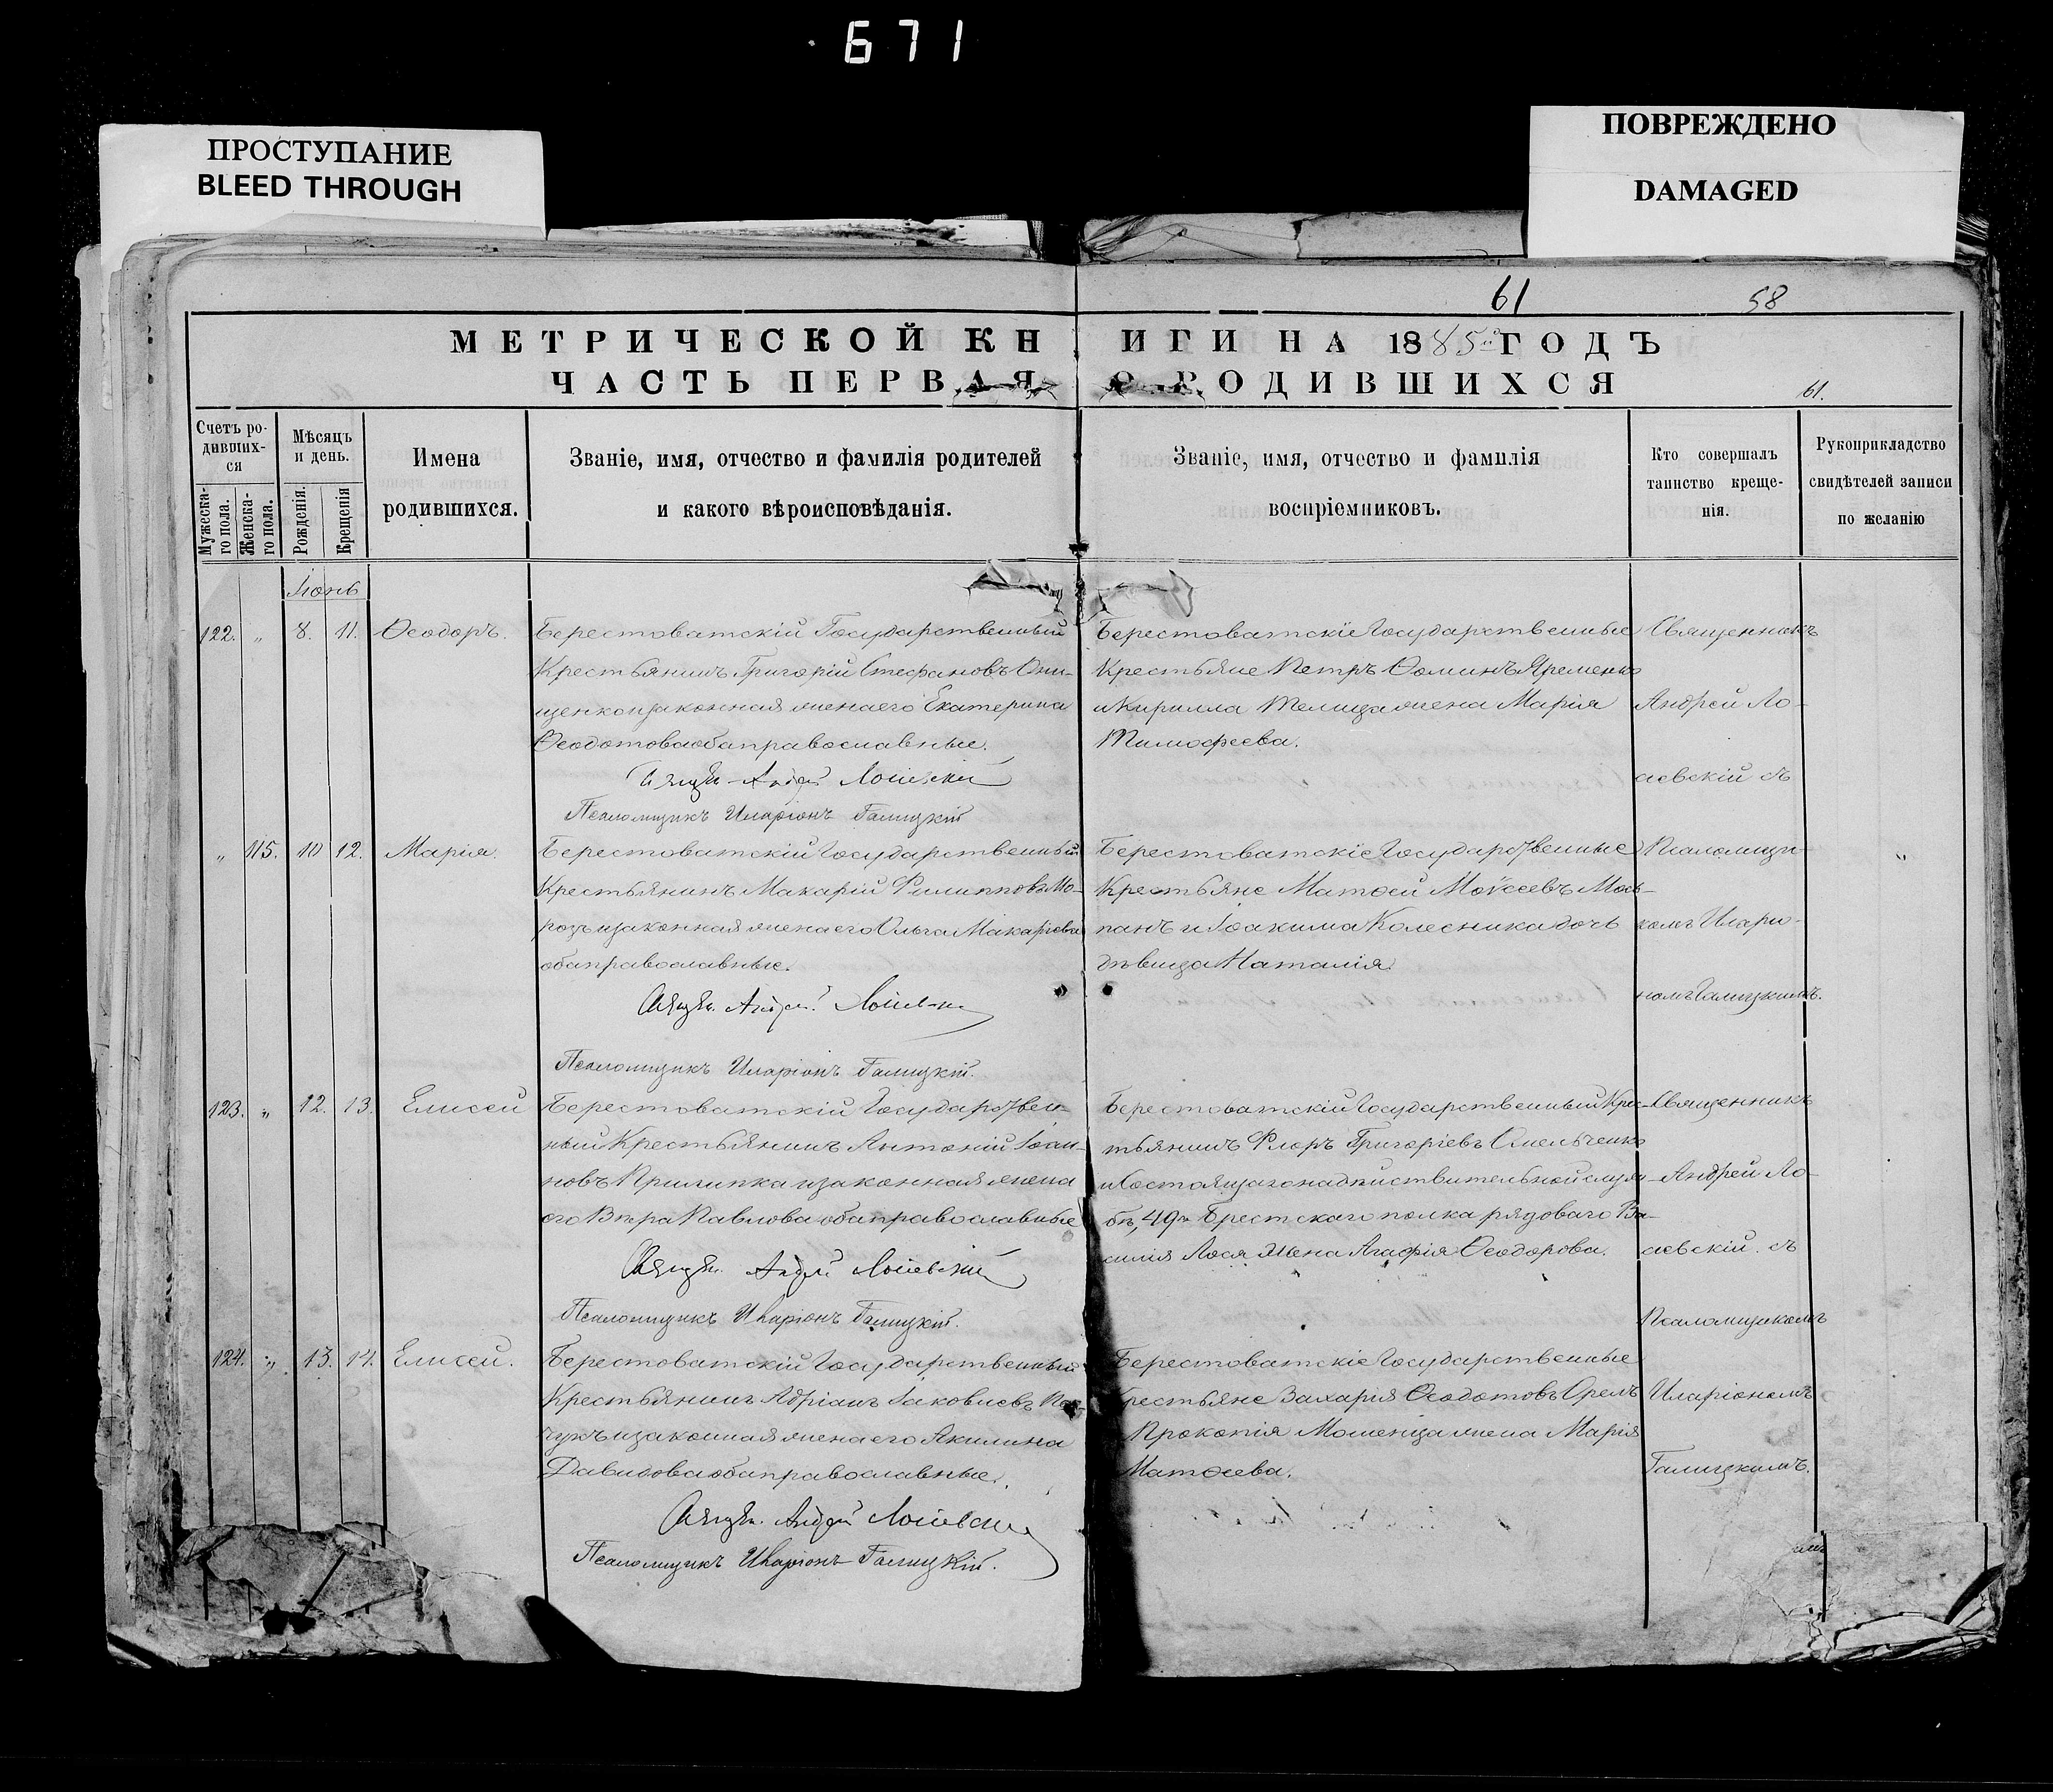 671
ПРОСТУПАНИЕ
BLEED THROUGH
ПОВРЕЖДЕНО
DAMAGED
61
58
МЕТРИЧЕСКОЙ КНИГИ НА 1885й ГОДЪ
ЧАСТЬ ПЕРВАЯ О РОДИВШИХСЯ
61.
Счетъ ро-
дивших-
ся
Мужеска-
го пола.
Женска-
го пола.
Мѣсяцъ
и день.
Рожденія.
Крещенія
Имена
родившихся.
Званіе, имя, отчество и фамилія родителей
и какого вѣроисповѣданія.
Званіе, имя, отчество и фамилія
воспріемниковъ.
Кто совершалъ
таинство креще-
нія.
Рукоприкладство
свидѣтелей записи
по желанію
Іюнь
122. " 8. 11. Ѳеодоръ.
Берестоватскій Государственный
Крестьянинъ Григорій Стефановъ Они-
щенко и законная жена его Екатерина
Ѳеодотова оба православные.
Священ. Андрей Лонгевскій
Псаломщикъ Иларіонъ Галицкій
Берестоватскіе Государственные
Крестьяне Петръ Ѳоминъ Яременко
и Кирилла Телица жена Марія
Тимофеева.
Священникъ
Андрей Ло-
" 115. 10 12. Марія.
Берестоватскій Государственный
Крестьянинъ Макарій Филипповъ Мо-
розъ и законная жена его Ольга Макаріева
оба православные.
Псаломщикъ Иларіонъ Галицкій.
Берестоватскіе Государственные
Крестьяне Матѳей Моѵсеевъ Мось-
панъ и Іоакима Колесника дочь
дѣвица Наталія.
Псаломщи-
комъ Иларіо-
номъ Галицкимъ.
"
123. " 12. 13. Елисей
Берестоватскій Государствен-
ный Крестьянинъ Антоній Іоан-
новъ Прилипка и законная жена
его Вѣра Павлова оба православные
Псаломщикъ Иларіонъ Галицкій.
Берестоватскій Государственный Крес-
тьянинъ Флоръ Григоріевъ Омельченко
и Состоящаго на дѣйствительной служ-
бѣ, 49го Брестскаго полка рядоваго Ва-
силія Лося жена Агафія Ѳеодорова.
Священникъ
Андрей Ло-
Псаломщикомъ
124. " 13. 14. Елисей.
Берестоватскій Государственный
Крестьянинъ Адріанъ Іаковлевъ
и законная жена его Акилина
Давидова оба православные.
Псаломщикъ Иларіонъ Галицкій.
Берестоватскіе Государственные
Крестьяне Захарія Ѳеодотовъ Орелъ
Прокопія Моменца жена Марія
Матѳеева.
Иларіономъ
Галицкимъ.